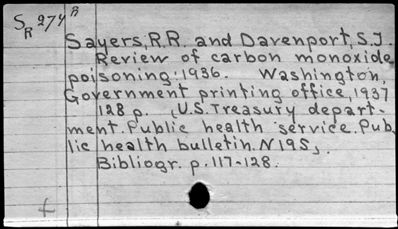 S R 274 R
Sayers, R.R. and Davenport, S.J.
Review of carbon monoxide
poisoning: 1936. Washington,
Government printing office, 1937
128 p. (U.S. Treasury depart-
ment. Public health service. Pub
lic health bulletin. N195).
Bibliogr. p. 117-128.